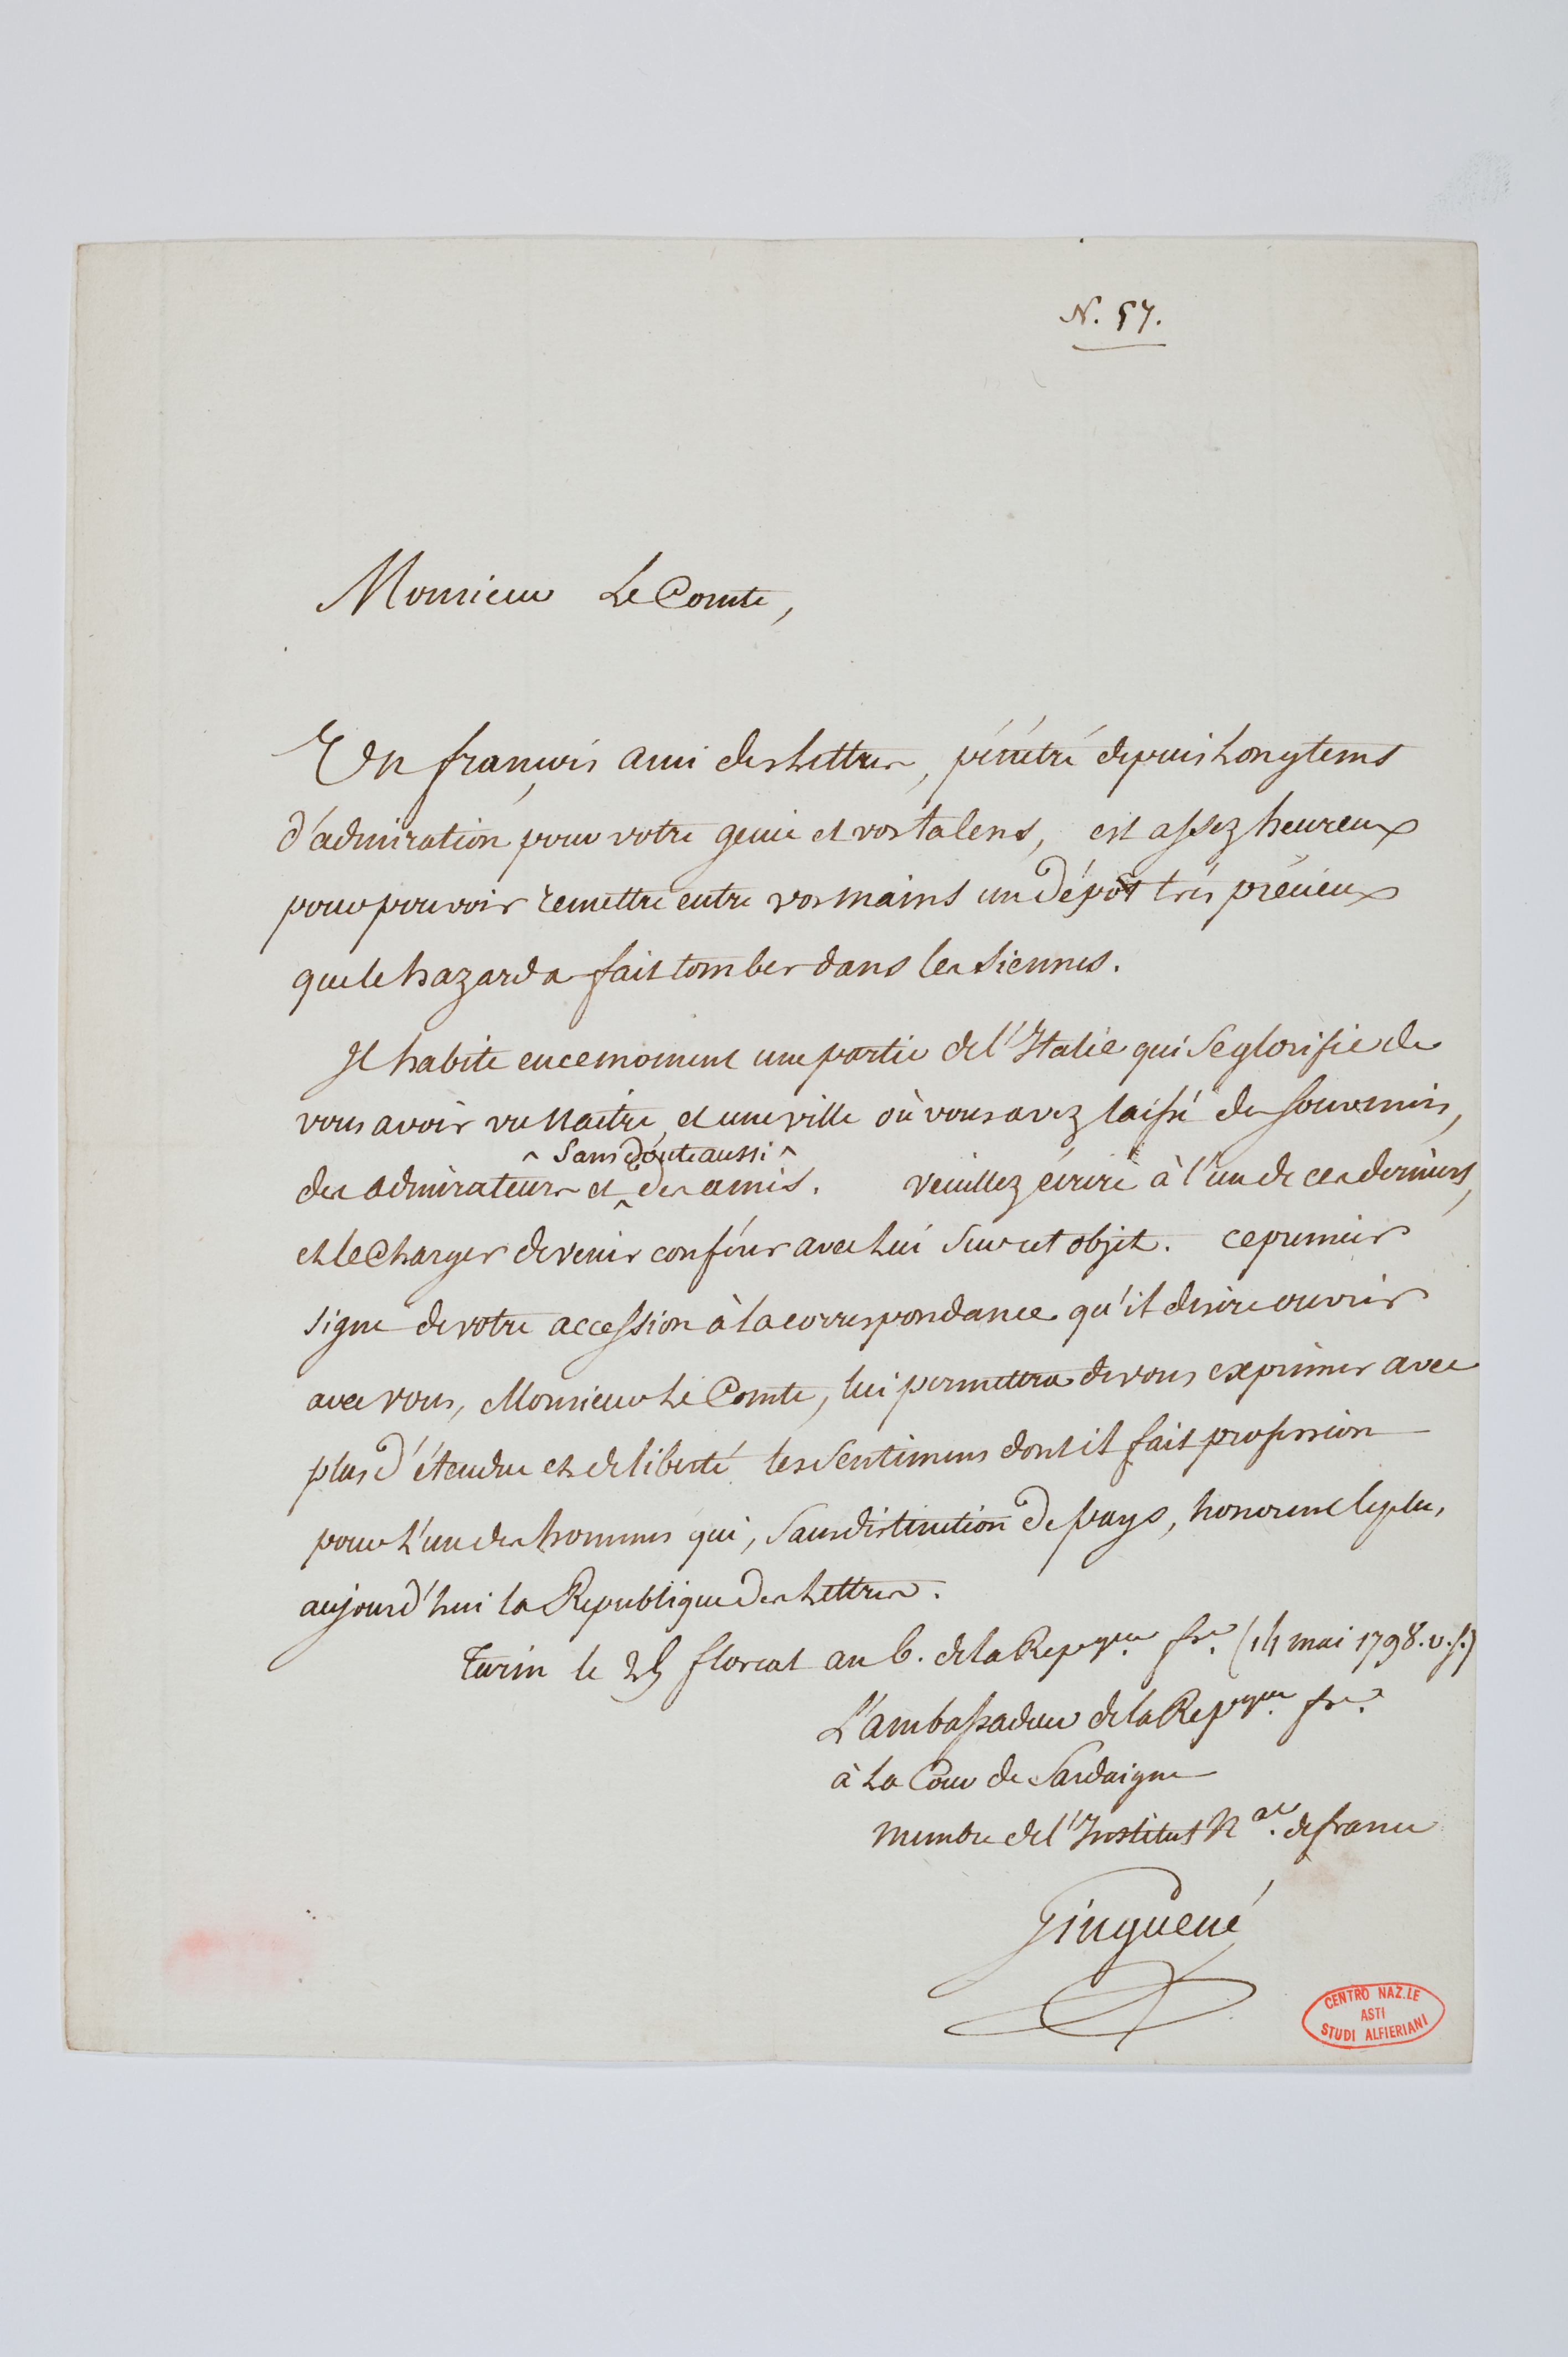 N. 57.
Monsieur Le Comte,
Un françois ami des Lettres, pénétré depuis Longtems
d'admiration pour votre genie et vos talens, est assez heureux
pour pouvoir remettre entre vos mains un dépôt très précieux
que le hazard a fait tomber dans les siennes.
Il habite en ce moment une partie de l'Italie qui se glorifie de
vous avoir vu naitre, et une ville où vous avez laissé des souvenirs,
^ sans doute aussi ^
des admirateurs et des amis. veuillez écrire à l'un de ces derniers,
et le charger de venir conférer avec Lui sur cet objet. ce premier
signe de votre accession à la correspondance qu'il desire ouvrir
avec vous, Monsieur Le Comte, lui permettra de vous exprimer avec
plus d'étendue et de liberté les sentimens dont il fait profession
pour L'un des hommes qui, sans distinction de pays, honorent le plus,
aujourd'hui la Republique des Lettres.
Turin le 25 floreal an 6. de la Repque. fse. (14 mai 1798. v.s.)
L'ambassadeur de la Repque. fse.
à La Cour de Sardaigne
membre de l'Institut Nal. de france
Ginguené
CENTRO NAZ.LE
ASTI
STUDI ALFIERIANI